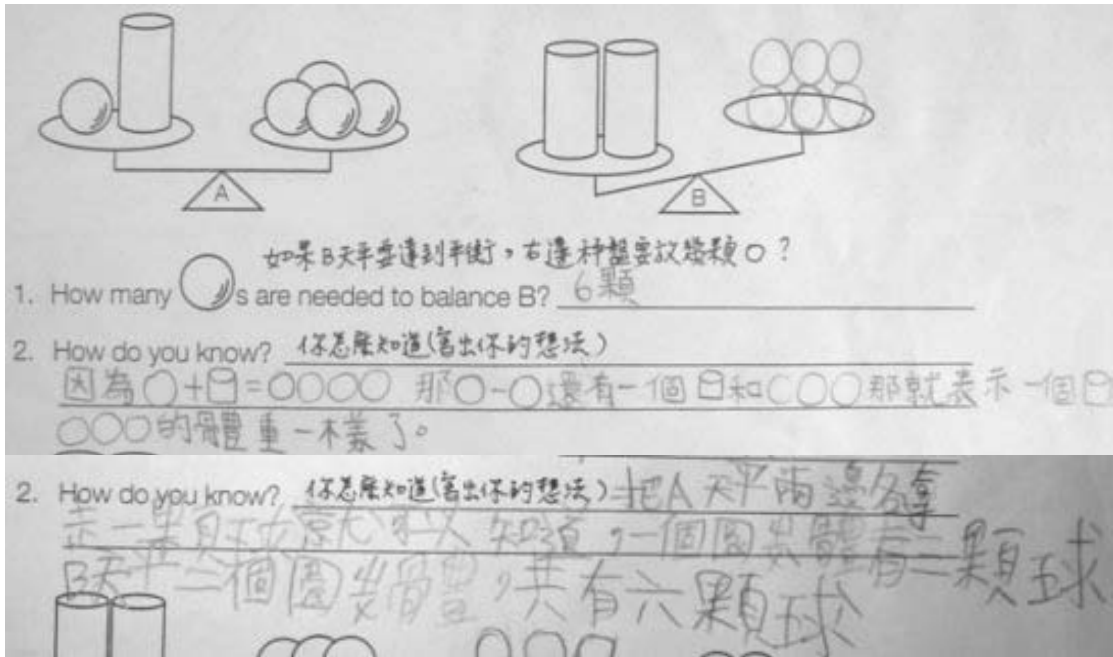 A
B
如果B天平要達到平衡，右邊秤盤要放幾顆○？
1. How many ○s are needed to balance B? 6顆
2. How do you know? 你怎麼知道(寫出你的想法)
因為○+⌸=○○○○ 那○-○還有一個⌸和○○○那就表示一個⌸
○○○的體重一樣了。
2. How do you know? 你怎麼知道(寫出你的想法) 把A天平兩邊各拿
走一顆球就可以知道，一個圓柱體有三顆球
B天平二個圓柱體，共有六顆球